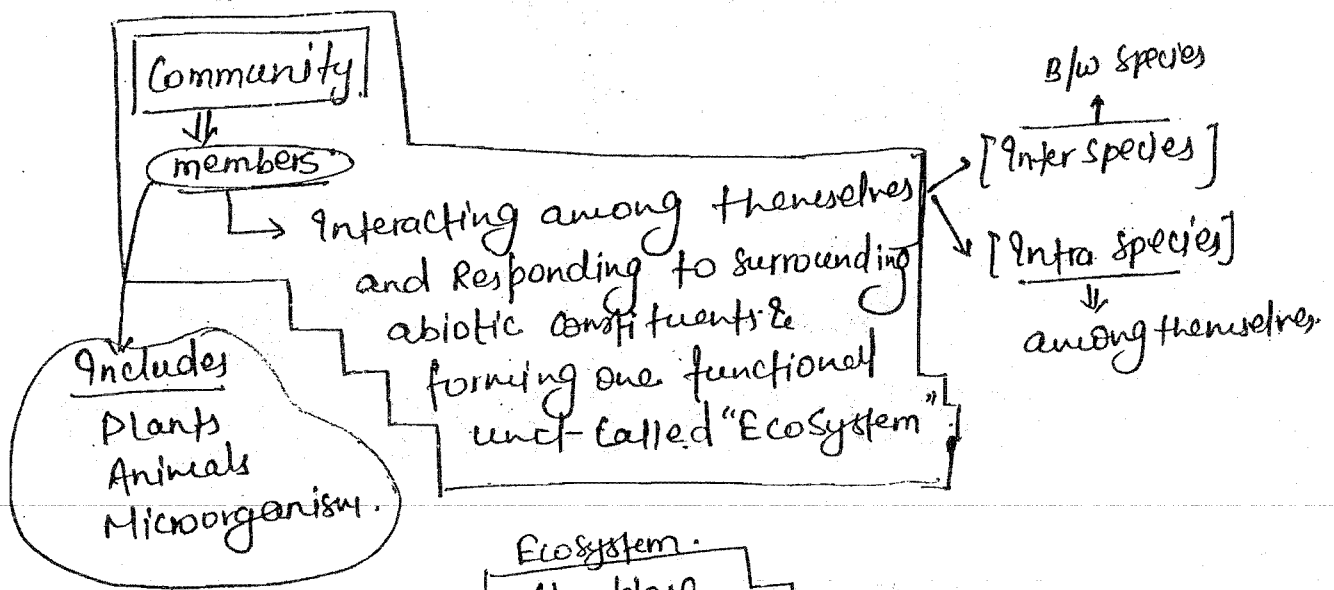 Community
members
Interacting among themselves
and Responding to surrounding
abiotic constituents &
forming one functional
unit called "Ecosystem"
B/w Species
[Inter Species]
[Intra Species]
among themselves.
Includes
Plants
Animals
Microorganism.
Ecosystem.